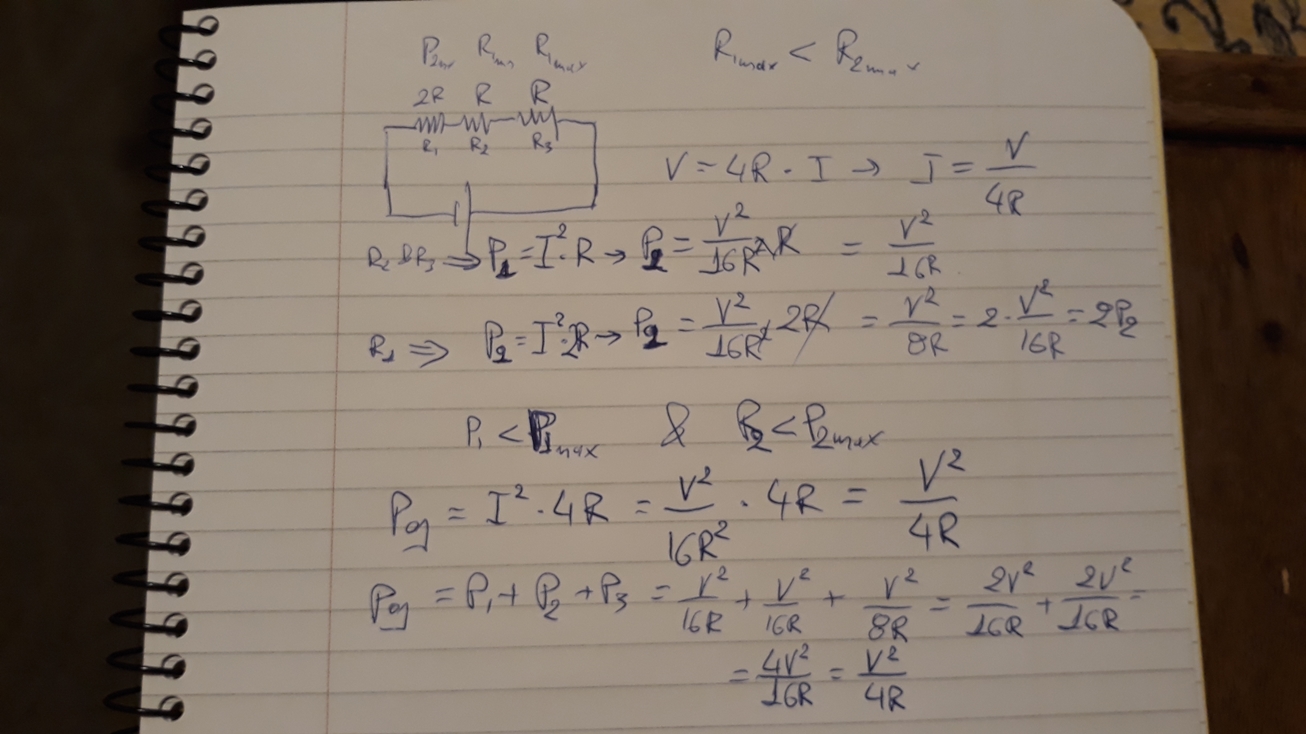 P₂ₘₐₓ R₁ₘᵢₙ R₁ₘₐₓ R₁ₘₐₓ < R₂ₘₐₓ
2R R R
R₁ R₂ R₃
V = 4R · I → I = V/4R
R₂ & R₃ ⇒ P₂ = I² · R → P₂ = V²/16R² · R = V²/16R
R₁ ⇒ P₂ = I² · 2R → P₂ = V²/16R² · 2R = V²/8R = 2 · V²/16R = 2P₂
P₁ < P₁ₘₐₓ & P₂ < P₂ₘₐₓ
P = I² · 4R = V²/16R² · 4R = V²/4R
P = P₁ + P₂ + P₃ = V²/16R + V²/16R + V²/8R = 2V²/16R + 2V²/16R =
= 4V²/16R = V²/4R